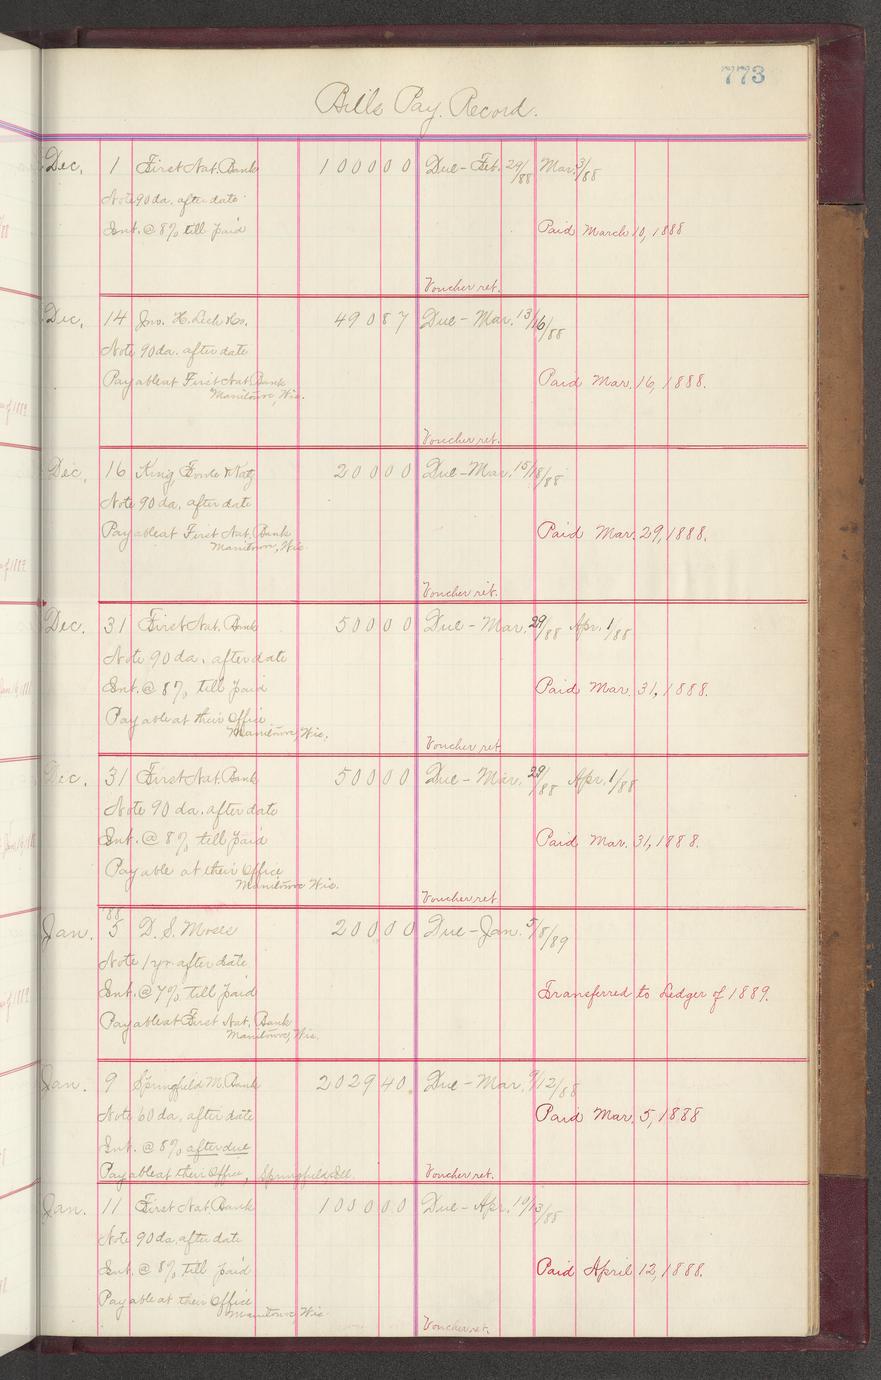 773
Bills Pay. Record.
Dec. 1 First Nat. Bank 1 0 0 0 0 0 Due - Feb. 29/88 Mar. 3/88
Note 90 da. after date
Int. @ 8% till paid Paid March 10, 1888
Voucher ret.
Dec. 14 Jno. H. & Co. 4 9 0 8 7 Due - Mar. 13/16/88
Note 90 da. after date
Payable at First Nat. Bank Paid Mar. 16, 1888.
Manitowoc, Wis.
Voucher ret.
Dec. 16 King 2 0 0 0 0 Due - Mar. 15/18/88
Note 90 da. after date
Payable at First Nat. Bank Paid Mar. 29, 1888.
Manitowoc, Wis.
Voucher ret.
Dec. 31 First Nat. Bank 5 0 0 0 0 Due - Mar. 29/88 Apr. 1/88
Note 90 da. after date
Int. @ 8% till paid Paid Mar. 31, 1888.
Payable at their Office
Manitowoc, Wis.
Voucher ret.
Dec. 31 First Nat. Bank 5 0 0 0 0 Due - Mar. 29/88 Apr. 1/88
Note 90 da. after date
Int. @ 8% till paid Paid Mar. 31, 1888.
Payable at their Office
Manitowoc Wis.
Voucher ret.
'88
Jan. 5 D. S. Moses 2 0 0 0 0 Due - Jan. 5/8/89
Note 1 yr. after date
Int. @ 7% till paid Transferred to Ledger of 1889.
Payable at First Nat. Bank
Manitowoc, Wis.
Jan. 9 Springfield M. Bank 2 0 2 9 4 0. Due - Mar. 9/12/88
Note 60 da. after date Paid Mar. 5, 1888
Int. @ 8% after due
Payable at their Office, Springfield Ill. Voucher ret.
Jan. 11 First Nat Bank 1 0 0 0 0 0 Due - Apr. 10/13/88
Note 90 da. after date
Int. @ 8% till paid Paid April 12, 1888.
Payable at their Office
Manitowoc Wis.
Voucher ret.